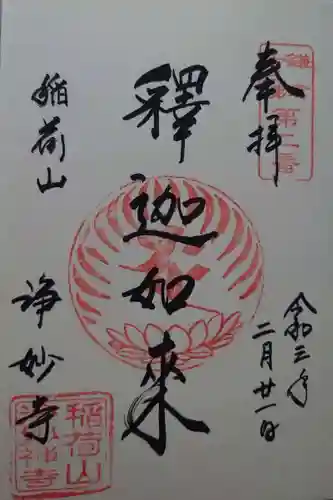 奉拝
鎌倉第二番
令和三年
二月廿一日
釋迦如来
稲荷山
浄妙寺
稲荷山